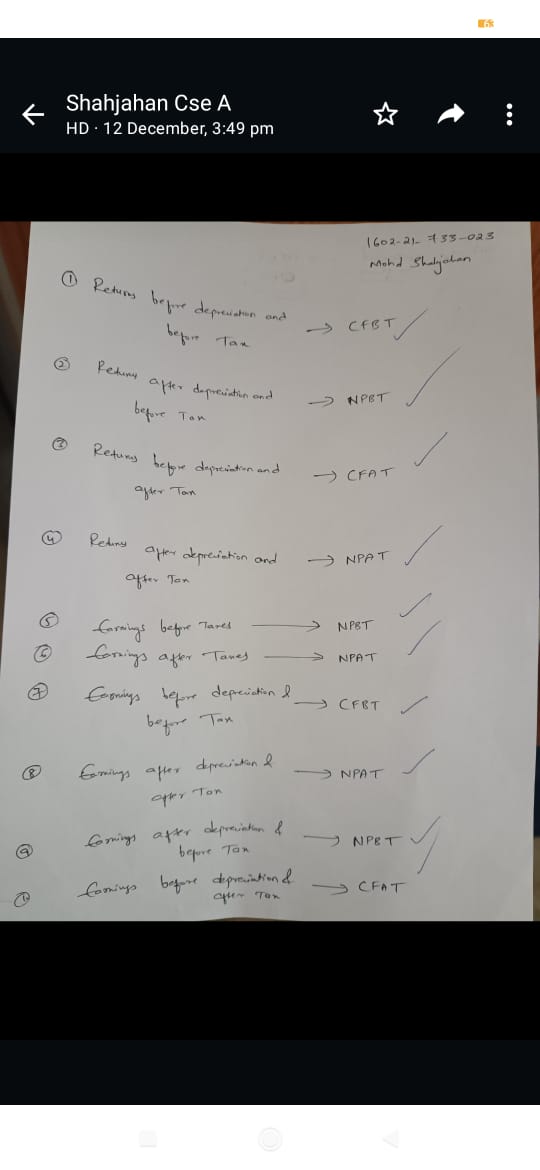 63
Shahjahan Cse A
HD · 12 December, 3:49 pm
1602-21-733-023
Mohd Shahjahan
① Returns before depreciation and → CFBT
before Tax
② Returns after depreciation and → NPBT
before Tax
③ Returns before depreciation and → CFAT
after Tax
④ Returns after depreciation and → NPAT
after Tax
⑤ Earnings before Taxes → NPBT
⑥ Earnings after Taxes → NPAT
⑦ Earnings before depreciation & → CFBT
before Tax
⑧ Earnings after depreciation & → NPAT
after Tax
⑨ Earnings after depreciation & → NPBT
before Tax
Earnings before depreciation & → CFAT
after Tax